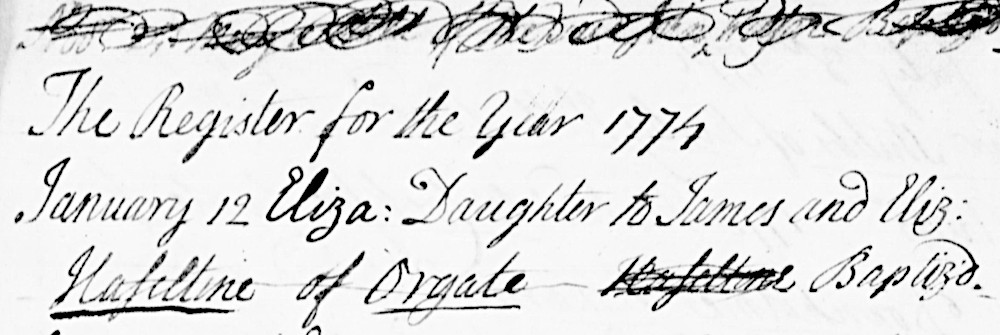 The Register for the Year 1774
January 12 Eliza: Daughter to James and Eliz:
Haseltine of Orgate Haseltine Baptiz'd.